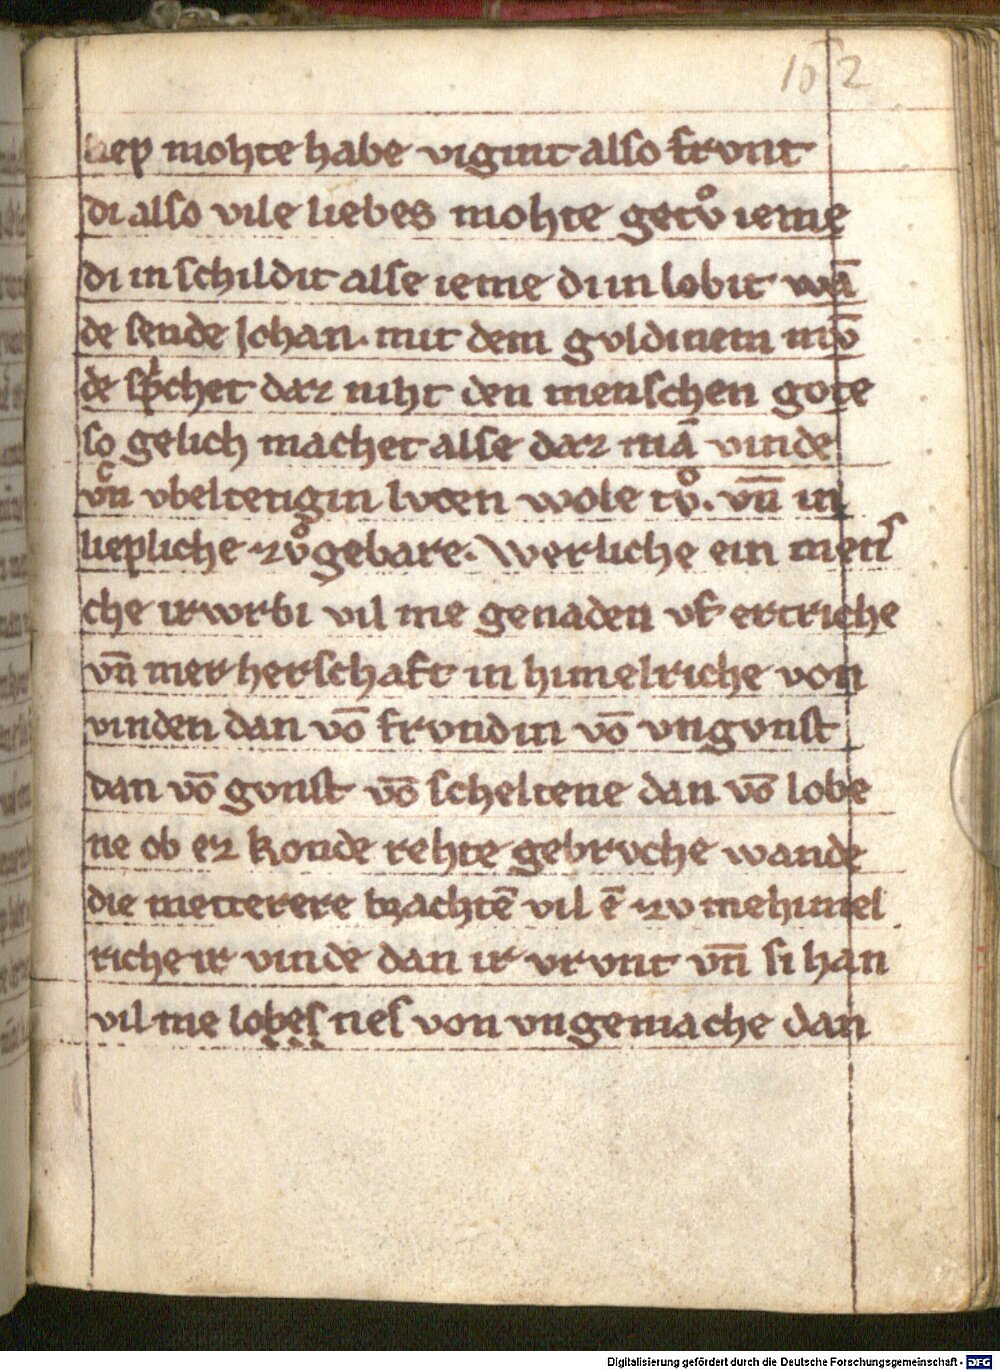 152
liep mohte habe vigint also frvnt
di also vile liebes mohte getvͦ ieme
di in schildit alse ieme di in lobit wā
de sende Johan. mit dem gvldinem mv̄
de sp͛chet daz niht den menschen gote
so gelich machet alse daz mā vinde
vn̄ vbeltetigin lvten wole tvͦ. vn̄ in
liepliche zvͦ gebare. Werliche ein mens
che irwrbi vil me genaden vf ertriche
vn̄ mer herschaft in himelriche von
vinden dan vō frvndin vō vngvnst
dan vō gvnst vō scheltene dan vō lobe
ne ob ez konde rehte gebrvche wande
die metterere brachtē vil ē zv mehimel
riche ir vinde dan ir vrvnt vn̄ si han
vil me lobes nes von vngemache dan
Digitalisierung gefördert durch die Deutsche Forschungsgemeinschaft - DFG